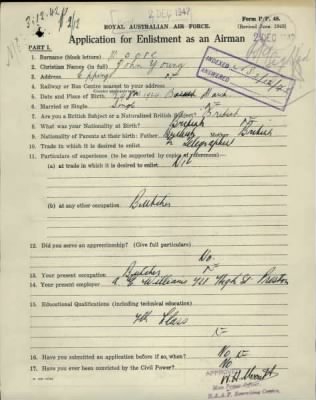 2 DEC 1942
Form P/P. 48.
ROYAL AUSTRALIAN AIR FORCE.
Application for Enlistment as an Airman
2 DEC
PART I.
INDEXED
ANSWERED
1. Surname (block letters) Moore
2. Christian Names (in full) John Young
3. Address Epping
4. Railway or Bus Centre nearest to your address
5. Date and Place of Birth
6. Married or Single Single
7. Are you a British Subject or a Naturalised British Subject British
8. What was your Nationality at Birth? British
9. Nationality of Parents at their birth: Father British Mother British
10. Trade in which it is desired to enlist Telegraphist
11. Particulars of experience (to be supported by copies of references)—
(a) at trade in which it is desired to enlist Nil
(b) at any other occupation Butcher
12. Did you serve an apprenticeship? (Give full particulars)
No.
13. Your present occupation Butcher
14. Your present employer Williams High St Preston
15. Educational Qualifications (including technical education)
Class
16. Have you submitted an application before if so, when? No
17. Have you ever been convicted by the Civil Power? No